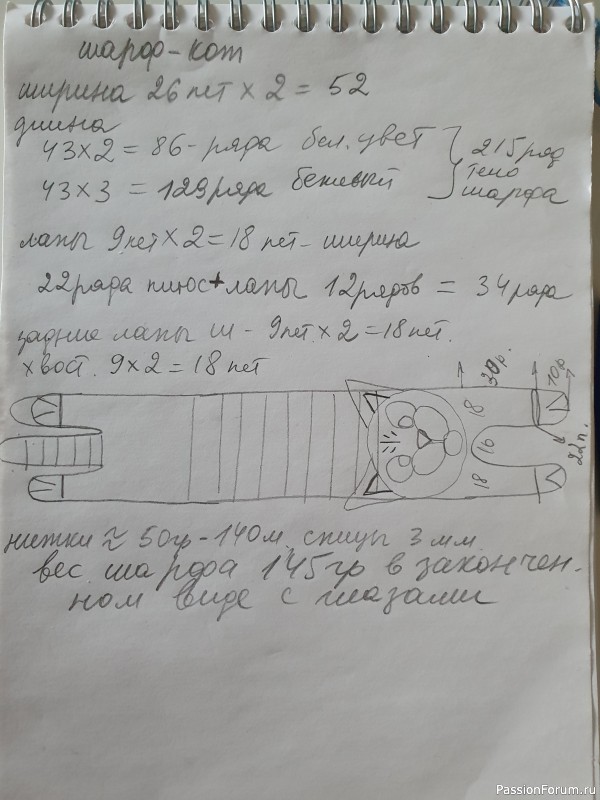 шарф-кот
ширина 26 пет × 2 = 52
длина
43×2 = 86 - ряда бел. цвет
43×3 = 129 ряда бежевый
215 ряд
тело
шарфа
лапы 9 пет × 2 = 18 пет - ширина
22 ряда плюс + лапы 12 рядов = 34 ряда
задние лапы ш - 9 пет. × 2 = 18 пет.
хвост. 9 × 2 = 18 пет
30р.
10р
18
16
18
22п.
нитки ≈ 50гр - 140м, спицы 3 мм
вес шарфа 145гр в закончен-
ном виде с глазами
PassionForum.ru